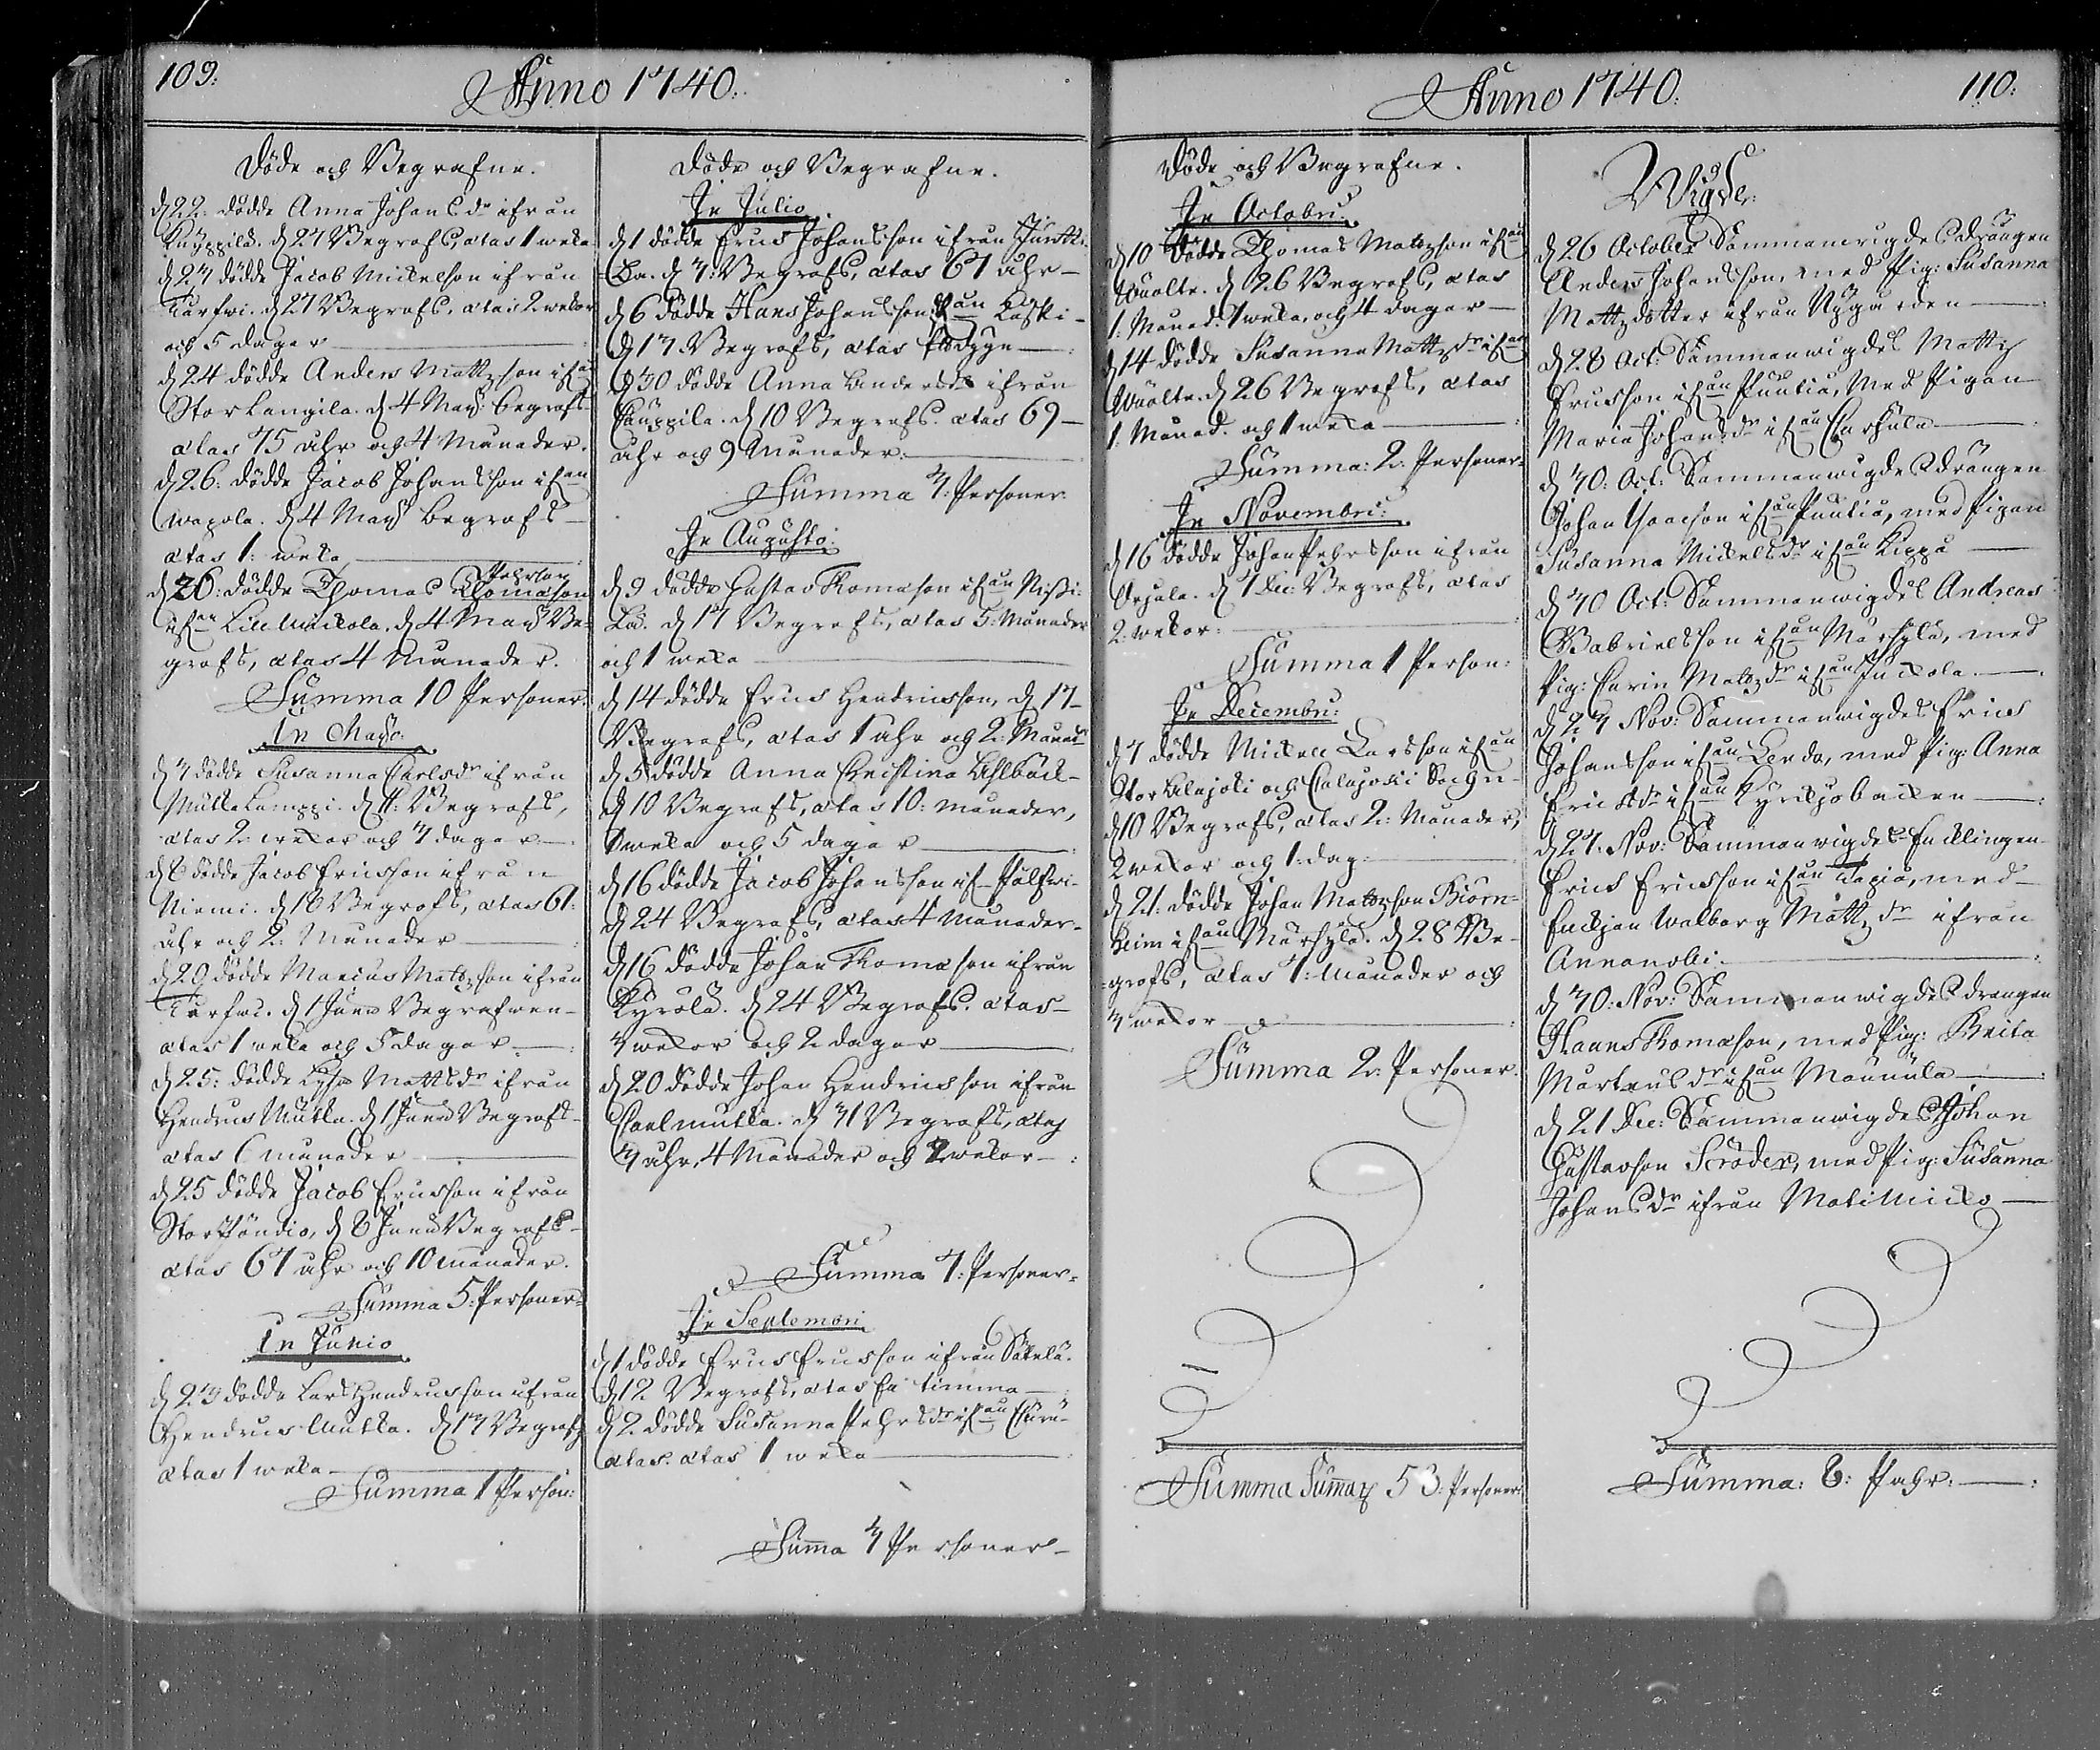 109:
Anno 1740.
Döde och Begrafne.
d 22: dödde Anna Johansdr ifrån
Kuyppila. d 27 Begrofs, ætas 1 weka
d 23 dödde Jacob Mickelson ifrån
Karfwi. d 27 Begrofs, ætas 2 wekor
och 5 dagar
d 24 dödde Anders Mattzson ifrån
Storlangila. d 4 Maij begrofs
ætas 75 åhr och 4 Månader.
d 26: dödde Jacob Johansson ifrån
wapola. d 4 Maij begrofs
ætas 1: weka
Pehrson
d 26: dödde Thomas Thomason
ifrån Lill Mickola. d 4 Maij Be-
grofs, ætas 4 Månader.
Summa 10 Personer.
In Majo.
d 3 dödde Susanna Carlsdr ifrån
Mulla Lamppi. d 11: Begrofs,
ætas 2 wekor och 3 dagar
d 8 dödde Jacob Ericsson ifrån
Niemi. d 18 Begrofs, ætas 61:
åhr och 2: Månader
d 29 dödde Marcus Mattzson ifrån
Karfwi. d 1 Junii Begrafwen
ætas 1 weka och 5 dagar
d 25: dödde Lisa Mattsdr ifrån
Hendrics Mutka. d 1 Junii Begrofs
ætas 6 månader
d 25 dödde Jacob Ericsson ifrån
Stor Pöndiö, d 8 Junii Begrofs
ætas 67 åhr och 10 månader.
Summa 5: Personer
In Junio
d 23 dödde Lars Hendricsson ifrån
Hendrics Mutka. d 13 Begrofs
ætas 1 weka
Summa 1 Person:
Döde och Begrafne.
In Julio
d 1 dödde Erics Johansson ifrån Juntti-
La. d 3: Begrofs, ætas 67 åhr
d 6 dödde Hans Johansson ifrån Kaski-
d 13 Begrofs, ætas
d 30 dödde Anna Andersdr ifrån
Cauppila. d 10 Begrofs. ætas 69
åhr och 9 Månader:
Summa 3: Personer.
In Augusto:
d 9 dödde Gustav Thomason ifrån Nissi-
La. d 17 Begrofs, ætas 5: Månader
och 1 weka
d 14 dödde Erics Hendricsson, d 17
Begrofs, ætas 1 åhr och 2: Månader
d 5 dödde Anna Christina Ahlbäck
d 10 Begrofs, ætas 10: månader,
1 weka och 5 dagar
d 16 dödde Jacob Johansson ifrån
d 24 Begrofs, ætas 4 månader
d 16 dödde Johan Thomason ifrån
Kyrölä. d 24 Begrofs. ætas
3 wekor och 2 dagar
d 20 dödde Johan Hendricsson ifrån
Carlmutka. d 31 Begrofs, ætas
3 åhr, 4 Månader och 2 wekor
Summa 7: Personer
In Septembri
d 1 dödde Erics Ericsson ifrån Sätelä.
d 12 Begrofs, ætas En timma
d 2 dödde Susanna Pehrsdr ifrån
ætas 1 weka
Summa 3 Personer
Anno 1740.
110:
Döde och Begrafne.
In Octobri:
d 10 dödde Thomas Mattzson ifrån
Wuolte. d 26 Begrofs, ætas
1. Månad. 1 weka, och 4 dagar
d 14 dödde Susanna Mattzdr ifrån
Wuolte. d 26 Begrofs, ætas
1. Månad. och 1 weka
Summa: 2: Personer
In Novembri:
d 16 dödde Johan Pehrsson ifrån
Orjala. d 7 Dec: Begrofs, ætas
2: wekor:
Summa 1 Person:
In Decembri:
d 3 dödde Mickell Larsson ifrån
Stor Alajoki och Calajoki Sochn
d 10 Begrofs, ætas 2: Månader,
2 wekor och 1: dag:
d 21: dödde Johan Mattzson Biörn-
heim ifrån Märsylä. d 28 Be-
grofs, ætas 7: Månader och
3 wekor
Summa 2: Personer
Summa Summar 53: Personer:
Wigde:
d 26 October Sammanwigdes drängen
Anders Johansson, med Pig: Susanna
Mattzdotter ifrån Nygården
d 28 Oct: Sammanwigdes Mattz
Ericsson ifrån Puutio, Med Pigan
Maria Johansdr ifrån Carhula
d 30: Oct: Sammanwigdes drängen
Johan Isacson ifrån Puutio, med Pigan
Susanna Mickelsdr ifrån Kippo
d 30 Oct: Sammanwigdes Andreas
Gabrielsson ifrån Märsylä, med
Pig: Carin Mattzdr ifrån Juckola
d 23 Nov: Sammanwigdes Erics
Johansson ifrån Leuda, med Pig: Anna
Ericsdr ifrån Kyrckjobacken
d 27. Nov: Sammanwigdes Encklingen
Erics Ericsson ifrån Tapio, med
Enckjan Walborg Mattzdr ifrån
Annanolli.
d 30: Nov: Sammanwigdes drengen
Hanns Thomason, med Pig: Brita
Martensdr ifrån Mannula
d 21 Dec: Sammanwigdes Johan
Gustavson Scroder, med Pig: Susanna
Johansdr ifrån Matimicko
Summa: 8: Pahr: